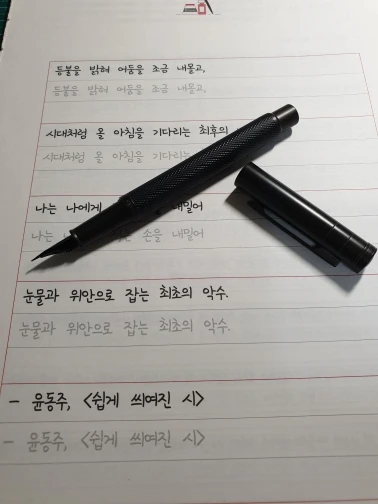 등불을 밝혀 어둠을 조금 내몰고,
등불을 밝혀 어둠을 조금 내몰고,
시대처럼 올 아침을 기다리는 최후의
시대처럼 올 아침을 기다리는
나는 나에게 내밀어
나는 손을 내밀어
눈물과 위안으로 잡는 최초의 악수.
눈물과 위안으로 잡는 최초의 악수.
- 윤동주, <쉽게 씌여진 시>
- 윤동주, <쉽게 씌여진 시>